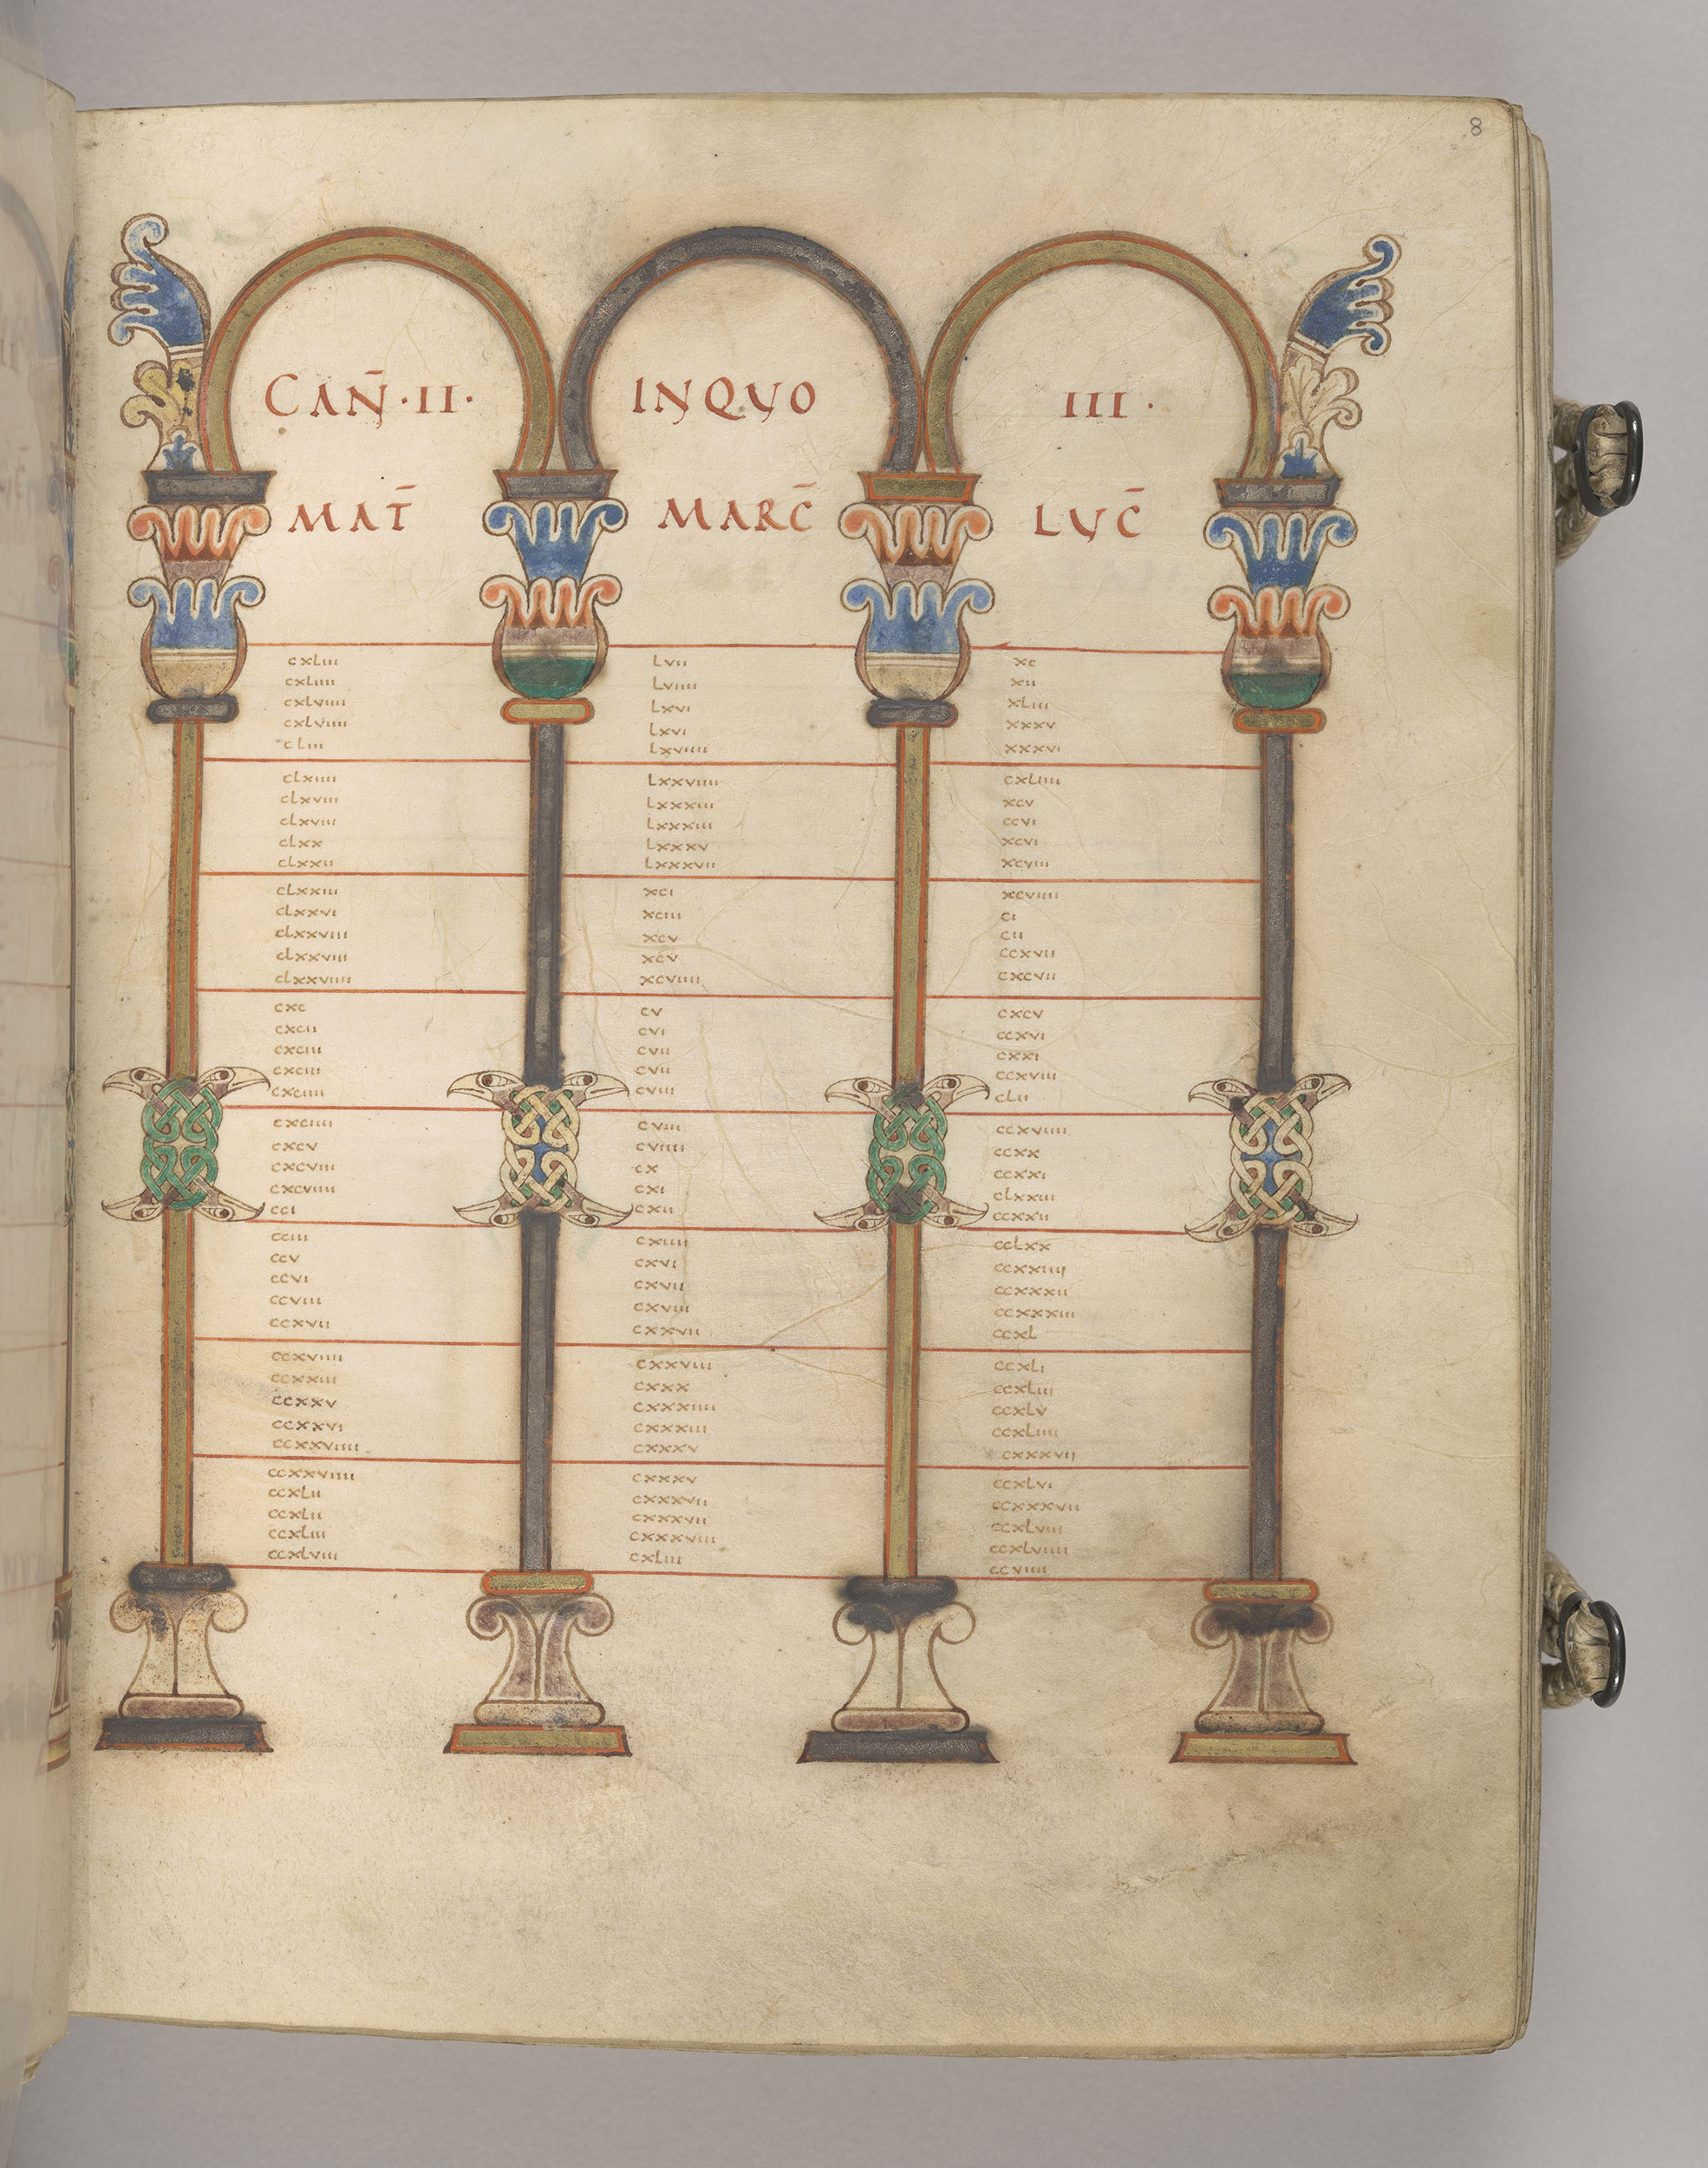 8
CAN̄·II· INQVO III·
MAT̄ MARC̄ LVC̄
cxliii lvii xc
cxliiii lviiii xii
cxlviiii lxvi xliii
cxlviiii lxvi xxxv
cliii lxviiii xxxvi
clxiiii lxxviiii cxliiii
clxviii lxxxiii xcv
clxviii lxxxiii ccvi
clxx lxxxv xcvi
clxxii lxxxvii xcviii
clxxiiii xci xcviiii
clxxvi xciii ci
clxxviii xcv cii
clxxviii xcv ccxvii
clxxviiii xcviiii cxcvii
cxc cv cxcv
cxcii cvi ccxvi
cxciii cvii cxxi
cxciii cvii ccxviii
cxciiii cviii clii
cxciiii cviii ccxviiii
cxcv cviiii ccxx
cxcviii cx ccxxi
cxcviiii cxi clxxiii
cci cxii ccxxii
cciii cxiiii cclxx
ccv cxvi ccxxiiii
ccvi cxvii ccxxxii
ccviii cxviii ccxxxiii
ccxvii cxxvii ccxl
ccxviiii cxxviii ccxli
ccxxiii cxxx ccxliii
ccxxv cxxxiiii ccxlv
ccxxvi cxxxiii ccxliiii
ccxxviiii cxxxv cxxxvii
ccxxviiii cxxxv ccxlvi
ccxlii cxxxvii ccxxxvii
ccxlii cxxxvii ccxlviii
ccxliii cxxxviii ccxlviiii
ccxlviii cxliii ccviiii